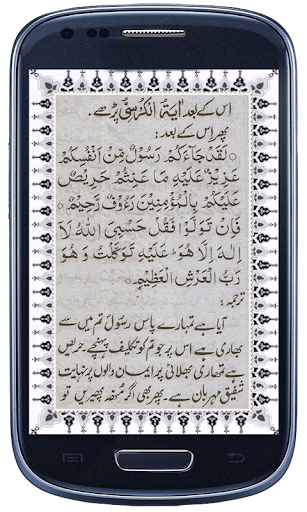 اس کے بعد اٰیَۃَ الْکُرْسِیْ پڑھے۔
پھر اس کے بعد:
لَقَدْ جَآءَكُمْ رَسُوْلٌ مِّنْ اَنْفُسِكُمْ
عَزِيْزٌ عَلَيْهِ مَا عَنِتُّمْ حَرِيْصٌ
عَلَيْكُمْ بِالْمُؤْمِنِيْنَ رَءُوْفٌ رَّحِيْمٌ
فَاِنْ تَوَلَّوْا فَقُلْ حَسْبِيَ اللّٰهُ لَا
اِلٰهَ اِلَّا هُوَ عَلَيْهِ تَوَكَّلْتُ وَهُوَ
رَبُّ الْعَرْشِ الْعَظِيْمِ
ترجمہ:
آیا ہے تمہارے پاس رسول تم میں سے
بھاری ہے اس پر جو تم کو تکلیف پہنچے حرص
ہے تمہاری بھلائی پر ایمان والوں پر نہایت
شفیق مہربان ہے۔ پھر بھی اگر منھ پھیریں تو